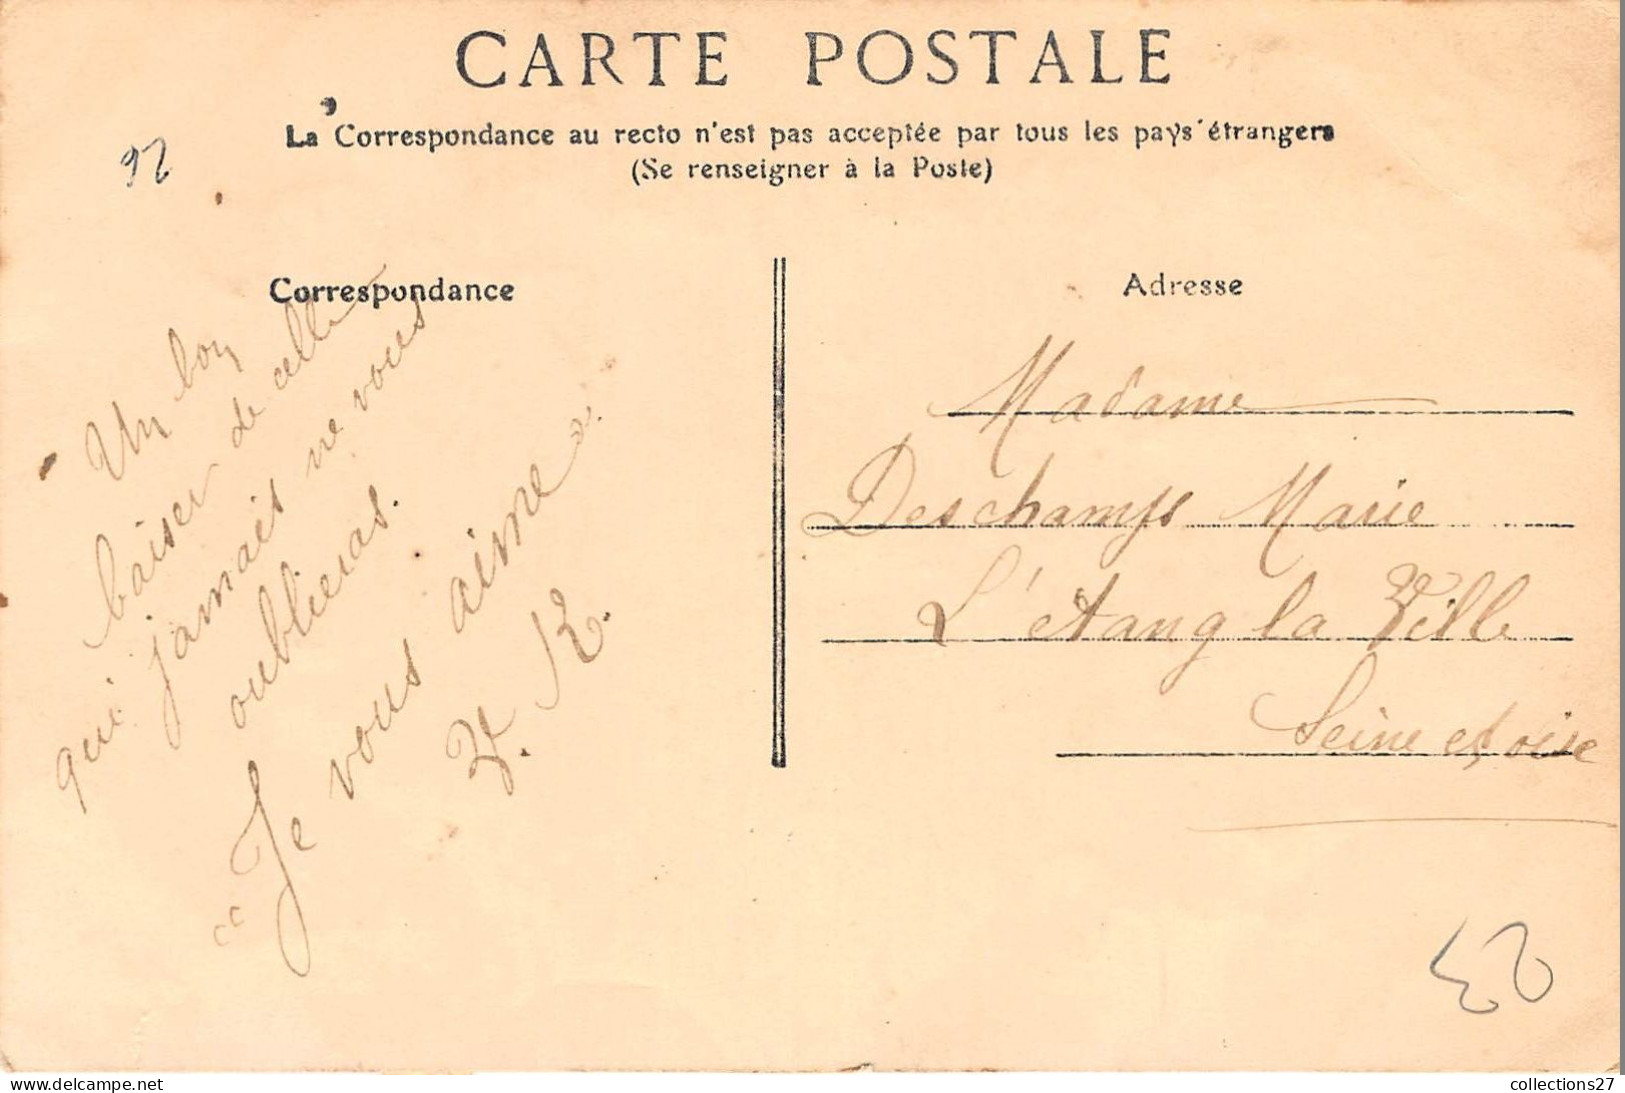 CARTE POSTALE
La Correspondance au recto n'est pas acceptée par tous les pays étrangers
(Se renseigner à la Poste)
92
Correspondance
Un bon
baiser de celle
qui jamais ne vous
oublieras.
"Je vous aime".
V. K.
Adresse
Madame
Deschamps Marie
L'étang la Ville
Seine et oise
collections27